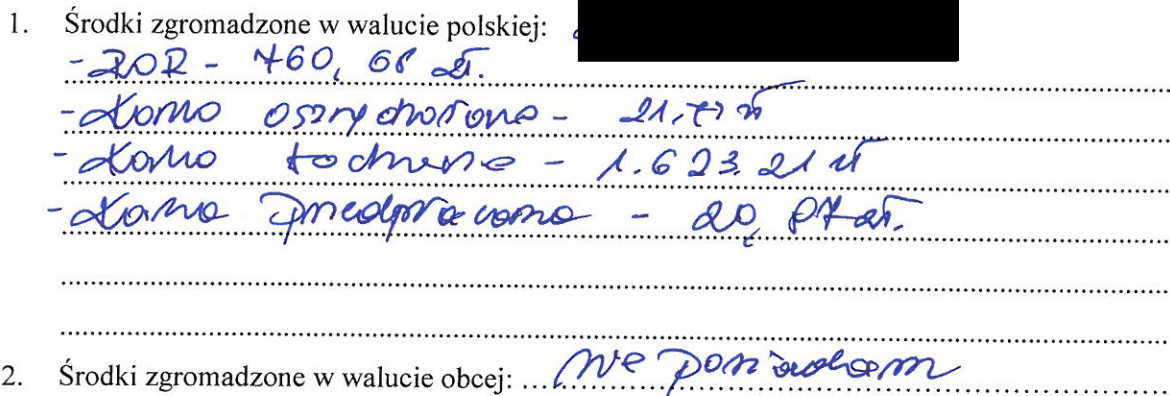 1. Środki zgromadzone w walucie polskiej:
- ROR - 760, 68 zł.
- Konto oszczędnościowe - 21,77 zł
- Konto - 1.623.21 zł
- Konto - 20, 87 zł.
2. Środki zgromadzone w walucie obcej: ... nie posiadam